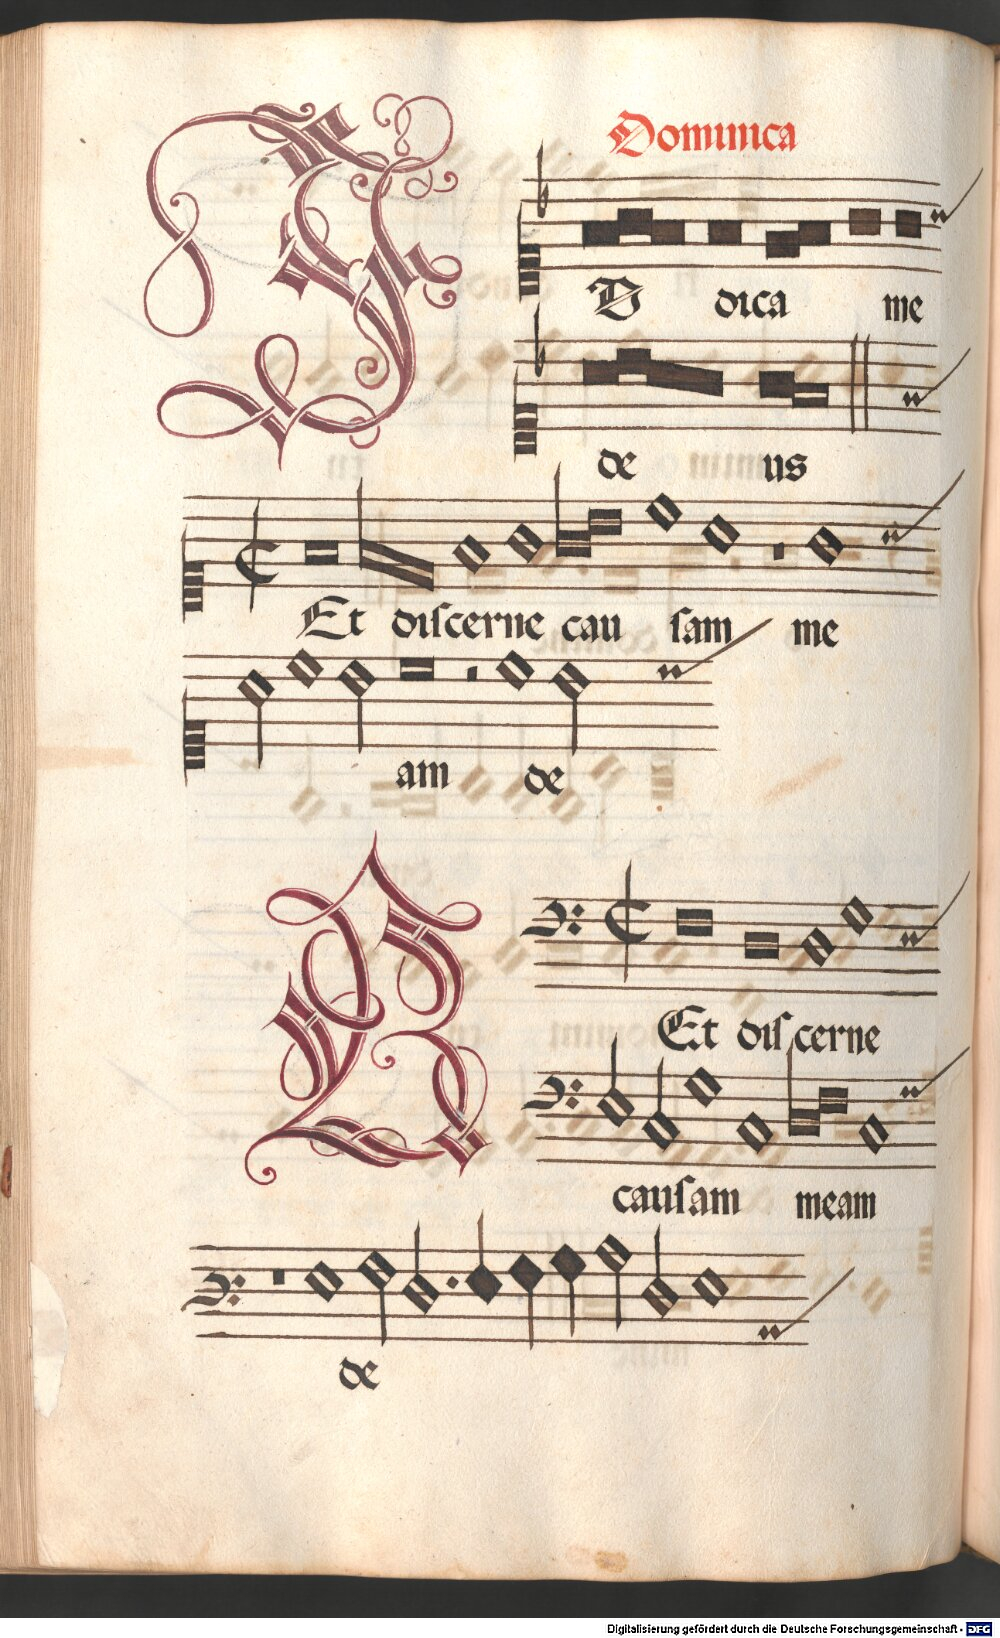 Dominica
J
V dica me
de us
Et discerne cau sam me
am de
B
Et discerne
causam meam
de
Digitalisierung gefördert durch die Deutsche Forschungsgemeinschaft - DFG